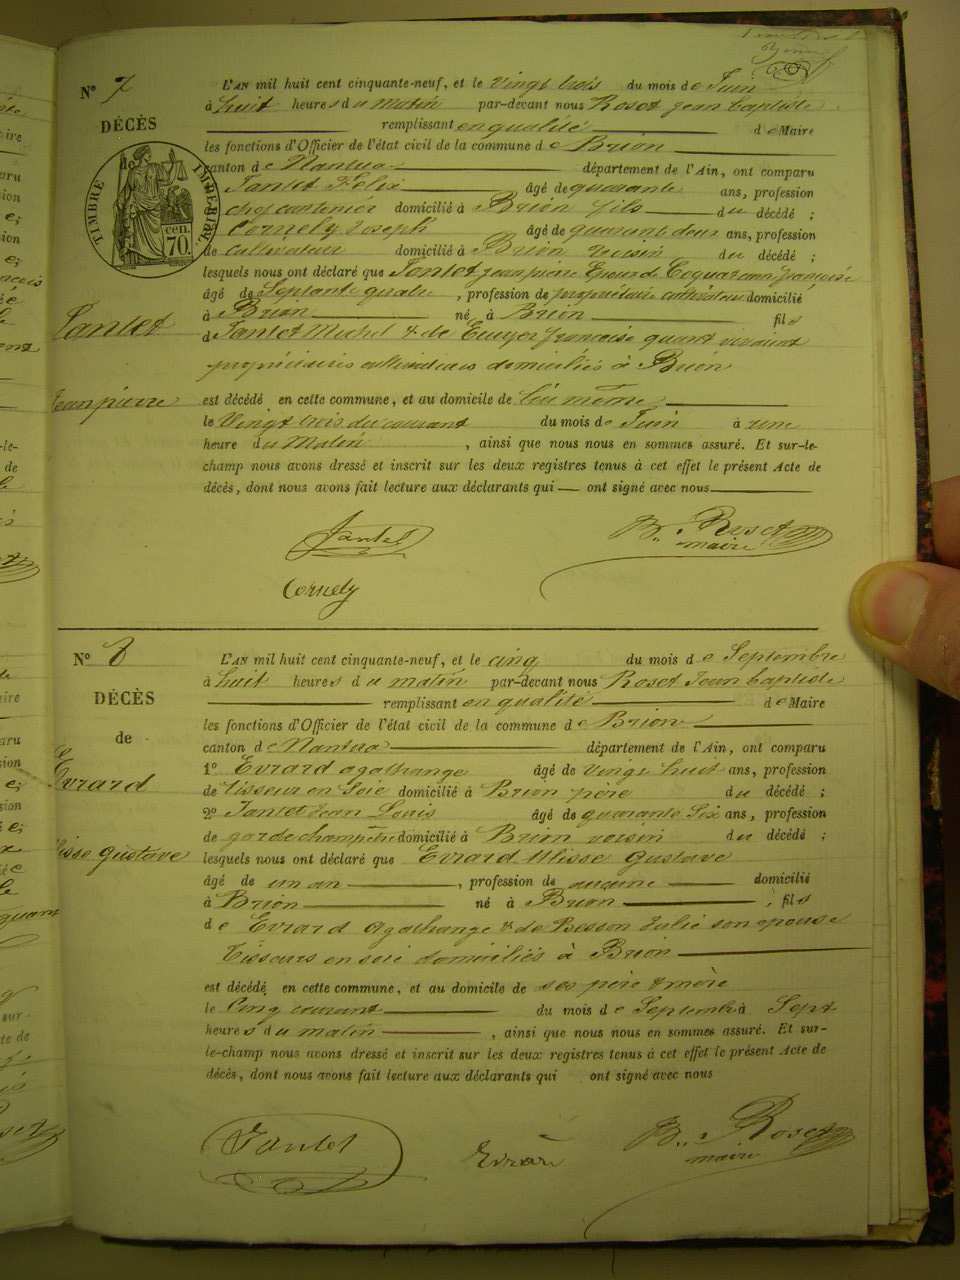 Nº 7
DÉCÈS
de
TIMBRE IMPERIAL
70. cen.
Tantet
Jean pierre
L'AN mil huit cent cinquante-neuf, et le vingt trois du mois de Juin
à huit heures du matin par-devant nous Roset jean baptiste
remplissant en qualité de Maire
les fonctions d'Officier de l'état civil de la commune de Brion
canton de Nantua département de l'Ain, ont comparu
Tantet Félix âgé de quarante ans, profession
chef cantonier domicilié à Brion fils du décédé ;
Cornely Joseph âgé de quarante deux ans, profession
de cultivateur domicilié à Brion voisin du décédé ;
lesquels nous ont déclaré que Tantet jean pierre Epoux de françoise
âgé de Septante quatre, profession de propriétaire cultivateur domicilié
à Brion né à Brion fils
d Tantet Michel & de Ecuyer françoise quant vivant
propriétaires cultivateurs domiciliés à Brion
est décédé en cette commune, et au domicile de lui même
le Vingt trois du courant du mois de Juin à une
heure du Matin, ainsi que nous nous en sommes assuré. Et sur-le-
champ nous avons dressé et inscrit sur les deux registres tenus à cet effet le présent Acte de
décès, dont nous avons fait lecture aux déclarants qui ont signé avec nous
Tantet
B. Roset
maire
Cornely
Nº 8
DÉCÈS
de
Evrard
Ulisse Gustave
L'AN mil huit cent cinquante-neuf, et le cinq du mois de Septembre
à huit heures du matin par-devant nous Roset Jean baptiste
remplissant en qualité de Maire
les fonctions d'Officier de l'état civil de la commune de Brion
canton de Nantua département de l'Ain, ont comparu
1º Evrard agathange âgé de vingt huit ans, profession
de tisseur en Soie domicilié à Brion père du décédé ;
2º Tantet Jean Louis âgé de quarante Six ans, profession
de garde champêtre domicilié à Brion voisin du décédé ;
lesquels nous ont déclaré que Evrard Ulisse Gustave
âgé de un an, profession de aucune domicilié
à Brion né à Brion ; fils
de Evrard Agathange & de Besson Julie son epouse
Tisseurs en soie domiciliés à Brion
est décédé en cette commune, et au domicile de ses père & mère
le Cinq courant du mois de Septembre à Sept
heures du matin, ainsi que nous nous en sommes assuré. Et sur-
le-champ nous avons dressé et inscrit sur les deux registres tenus à cet effet le présent Acte de
décès, dont nous avons fait lecture aux déclarants qui ont signé avec nous
Tantet
Evrard
B. Roset
maire